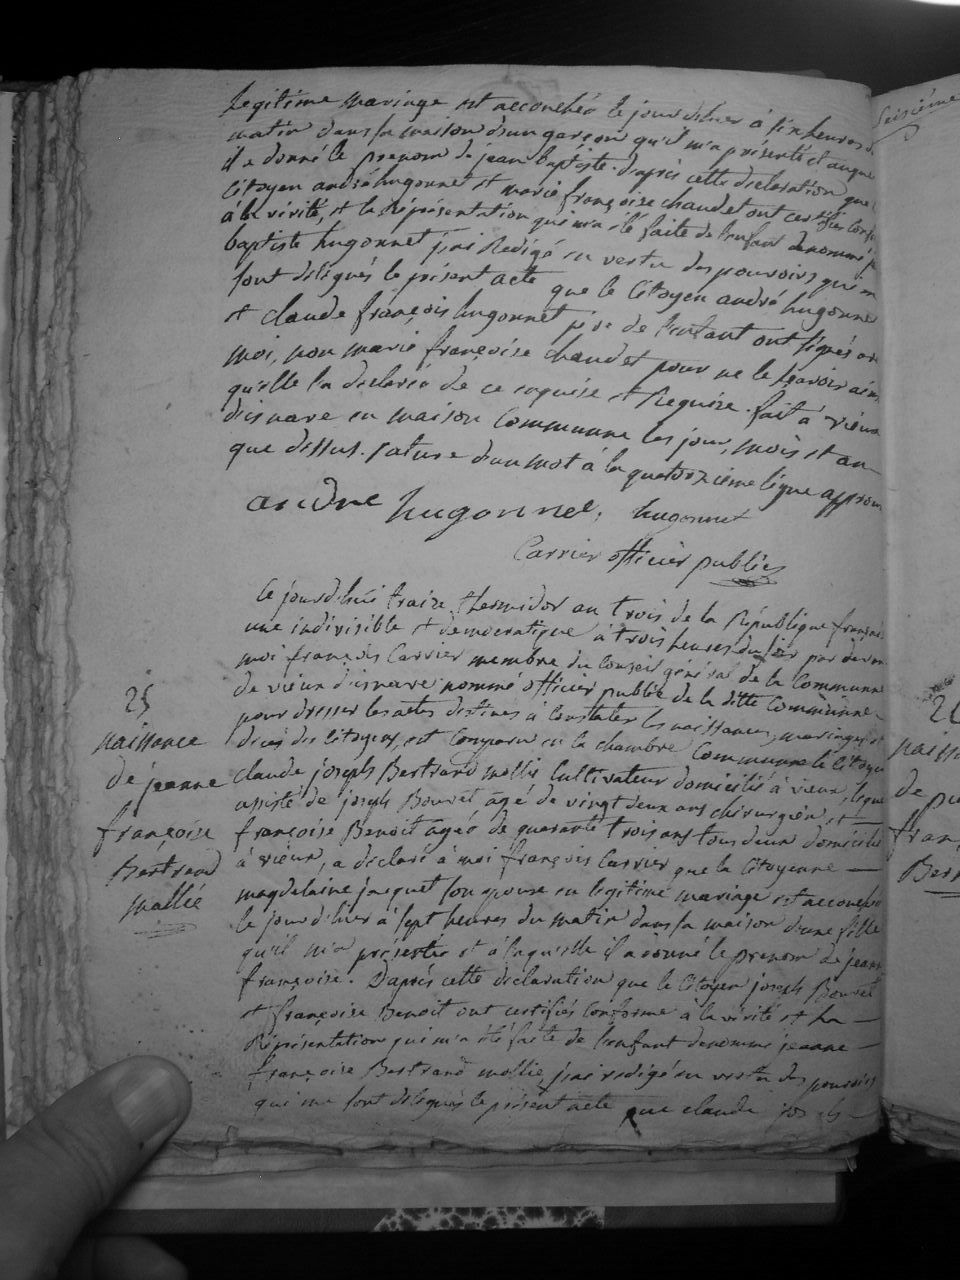 legitime mariage est accouchée le jour d'hier à six heures du
matin dans sa maison d'un garçon qu'il m'a présenté et auquel
il a donné le prenom de jean baptiste. d'après cette declaration que le
Citoyen andré hugonnet et marie françoise chaudet ont certifiés conforme
à la vérité, et la Réprésentation qui m'a été faite de l'enfant denommé jean
baptiste hugonnet j'ai Redigé en vertu des pouvoirs qui me
sont délégués le présent acte que le Citoyen andré hugonnet
et claude françois hugonnet père de l'enfant ont signés avec
moi, non marie françoise chaudet pour ne le sçavoir ainsi
qu'elle l'a declaréé de ce enquise et Requise. fait à vieux
d'isnave en maison Communne les jour, mois et an
que dessus. rature d'un mot à la quatorzième ligne approuvé
andre hugonnet, hugonnet
Carrier officier public
Ce jourd'hui traize thermidor an trois de la République française
une indivisible et democratique à trois heures du soir par devant
moi françois Carrier membre du Conseil général de la Communne
de vieux d'isnave nommé officier public de la ditte Communne
pour dresser les actes destinés à Constater les naissances, mariages et
décès des Citoyens, est Comparu en la chambre Communne le Citoyen
claude joseph Bertrand mollie Cultivateur domicilié à vieux, lequel
assisté de joseph Bouvet agé de vingt deux ans chirurgien, et
françoise Benoit agée de quarante trois ans tous deux domiciliés
à vieux, a declaré à moi françois Carrier que la Citoyenne
magdelaine jacquet son épouse en legitime mariage est accouchée
le jour d'hier à sept heures du matin dans sa maison d'une fille
qu'il m'a présentée et à laquelle il a donné le prenom de jeanne
françoise. D'après cette declaration que le Citoyen joseph Bouvet
et françoise Benoit ont certifiés Conforme à la vérité et la
Réprésentation qui m'a été faite de l'enfant denommé jeanne
françoise Bertrand mollie, j'ai redigé en vertu des pouvoirs
qui me sont délégués le présent acte que claude joseph
25
naissance
de jeanne
françoise
Bertrand
mollié
Seisième
2
naiss
de
fran
Ber